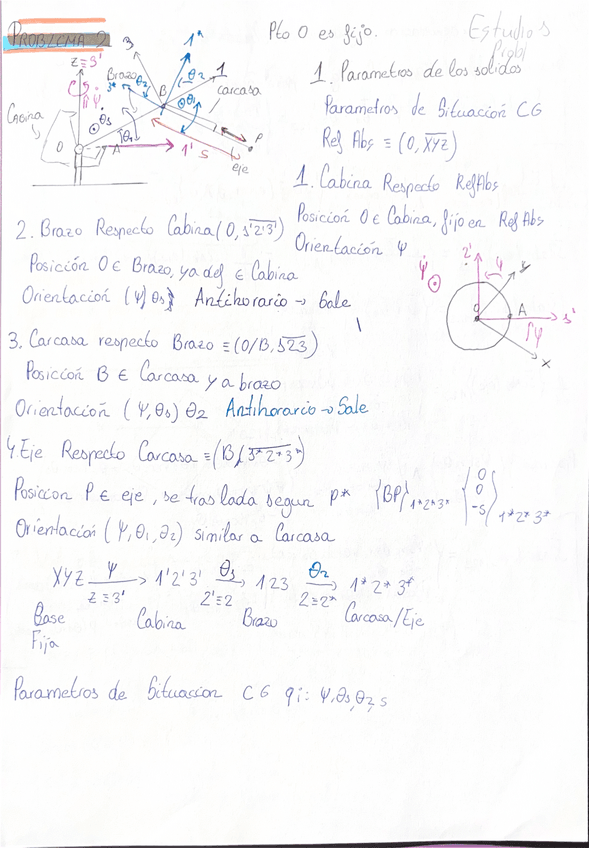 PROBLEMA 2
Pto O es fijo.
Estudios
Z≡3'
3
1*
1
Brazo
θ2
3*
B
θ2
Carcasa
Cabina
ψ
θ1
O
A
1'
S
P
eje
1. Parametros de los solidos
Parametros de Situación CG
Ref Abs ≡ (O, XYZ)
1. Cabina Respecto RefAbs
Posición O ∈ Cabina, fijo en Ref Abs
Orientación ψ
2. Brazo Respecto Cabina (O, 1'2'3')
Posición O ∈ Brazo, ya def ∈ Cabina
Orientación (ψ) θ1 Antihorario → Sale
2'
ψ
y
ψ
O
A
1'
ψ
x
3. Carcasa respecto Brazo ≡ (O/B, 123)
Posición B ∈ Carcasa y a brazo
Orientación (ψ, θ1) θ2 Antihorario → Sale
4. Eje Respecto Carcasa ≡ (B, 1* 2* 3*)
Posicion P ∈ eje, se traslada segun P* {BP}1*2*3* {0 0 -s}1*2*3*
Orientación (ψ, θ1, θ2) similar a Carcasa
XYZ ψ → 1'2'3' θ1 → 123 θ2 → 1* 2* 3*
Z≡3' 2'≡2 2≡2*
Base Cabina Brazo Carcasa/Eje
Fija
Parametros de Situacion CG qi: ψ, θ1, θ2, s